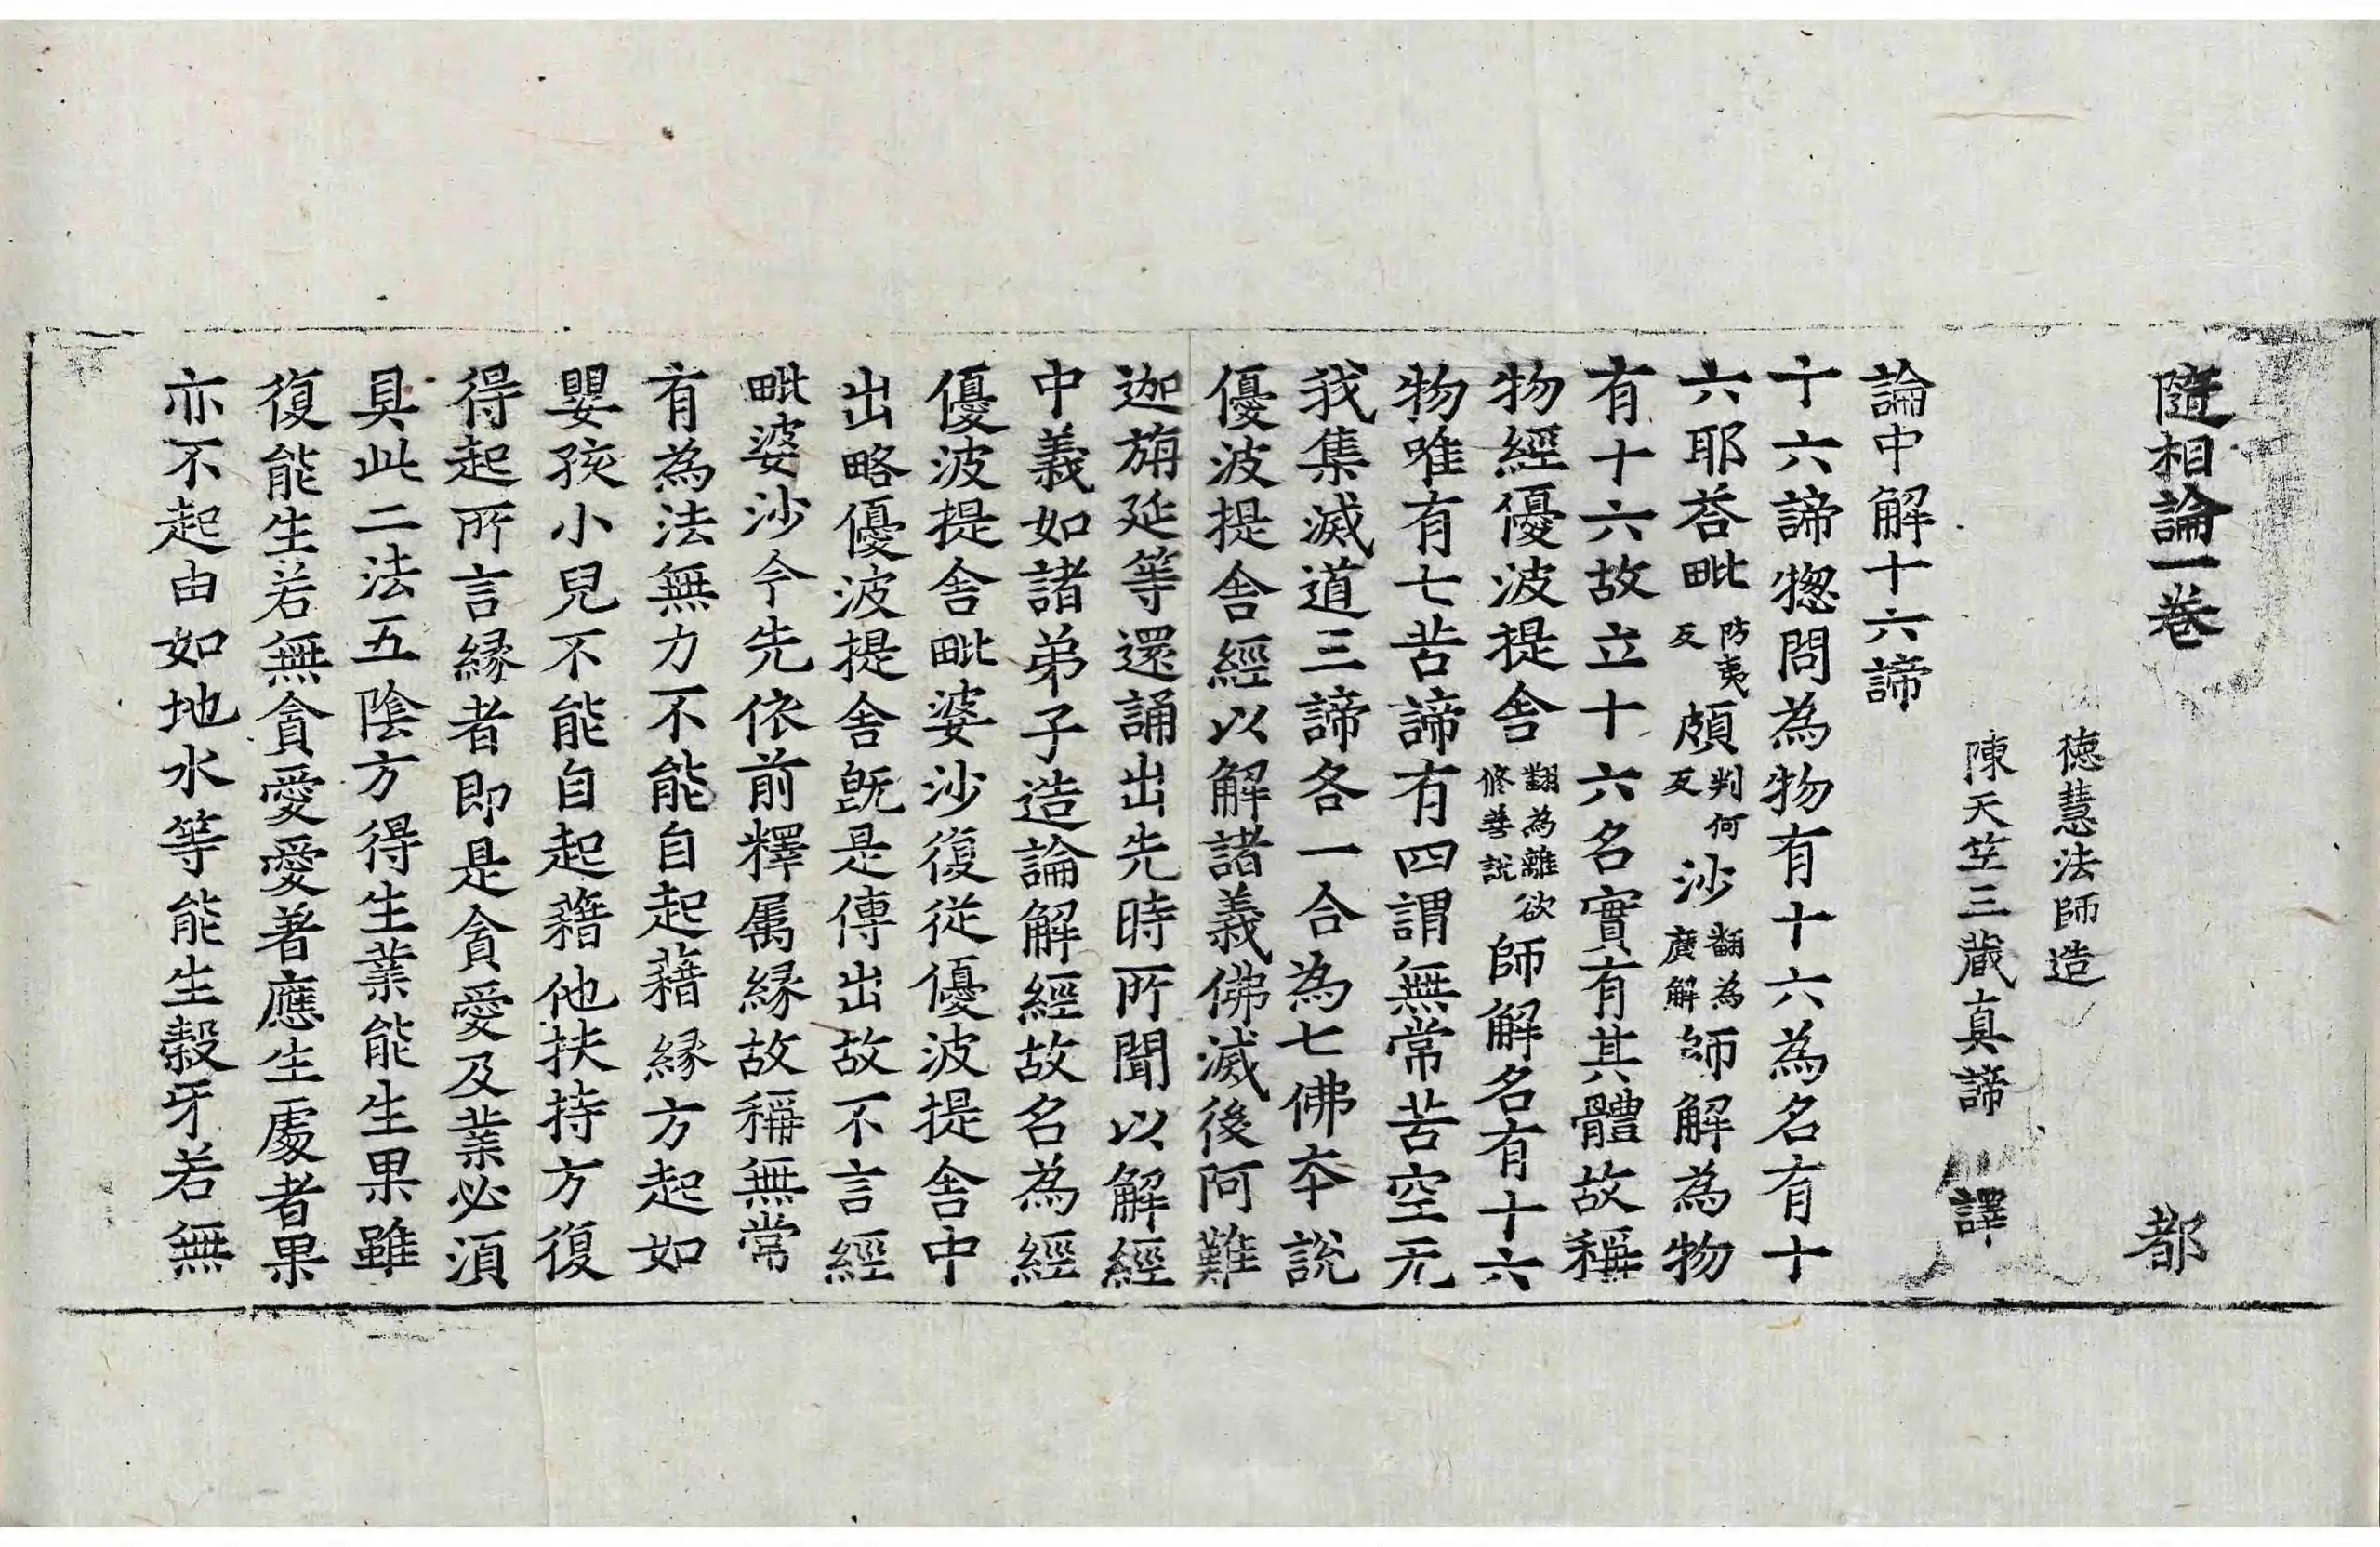 隨相論一卷　都
德慧法師造
陳天竺三藏真諦　譯
論中解十六諦
十六諦惣問為物有十六為名有十
六耶荅毗防夷反頗判何反沙翻為廣解師解為物
有十六故立十六名實有其體故稱
物經優波提舍翻為離欲修善說師解名有十六
物唯有七苦諦有四謂無常苦空无
我集滅道三諦各一合為七佛夲說
優波提舍經以解諸義佛滅後阿難
迦旃延等還誦出先時所聞以解經
中義如諸弟子造論解經故名為經
優波提舍毗婆沙復從優波提舍中
出略優波提舍旣是傳出故不言經
毗婆沙今先依前釋屬緣故稱無常
有為法無力不能自起藉緣方起如
嬰孩小兒不能自起藉他扶持方復
得起所言緣者即是貪愛及業必湏
具此二法五陰方得生業能生果雖
復能生若無貪愛愛著應生處者果
亦不起由如地水等能生穀牙若無